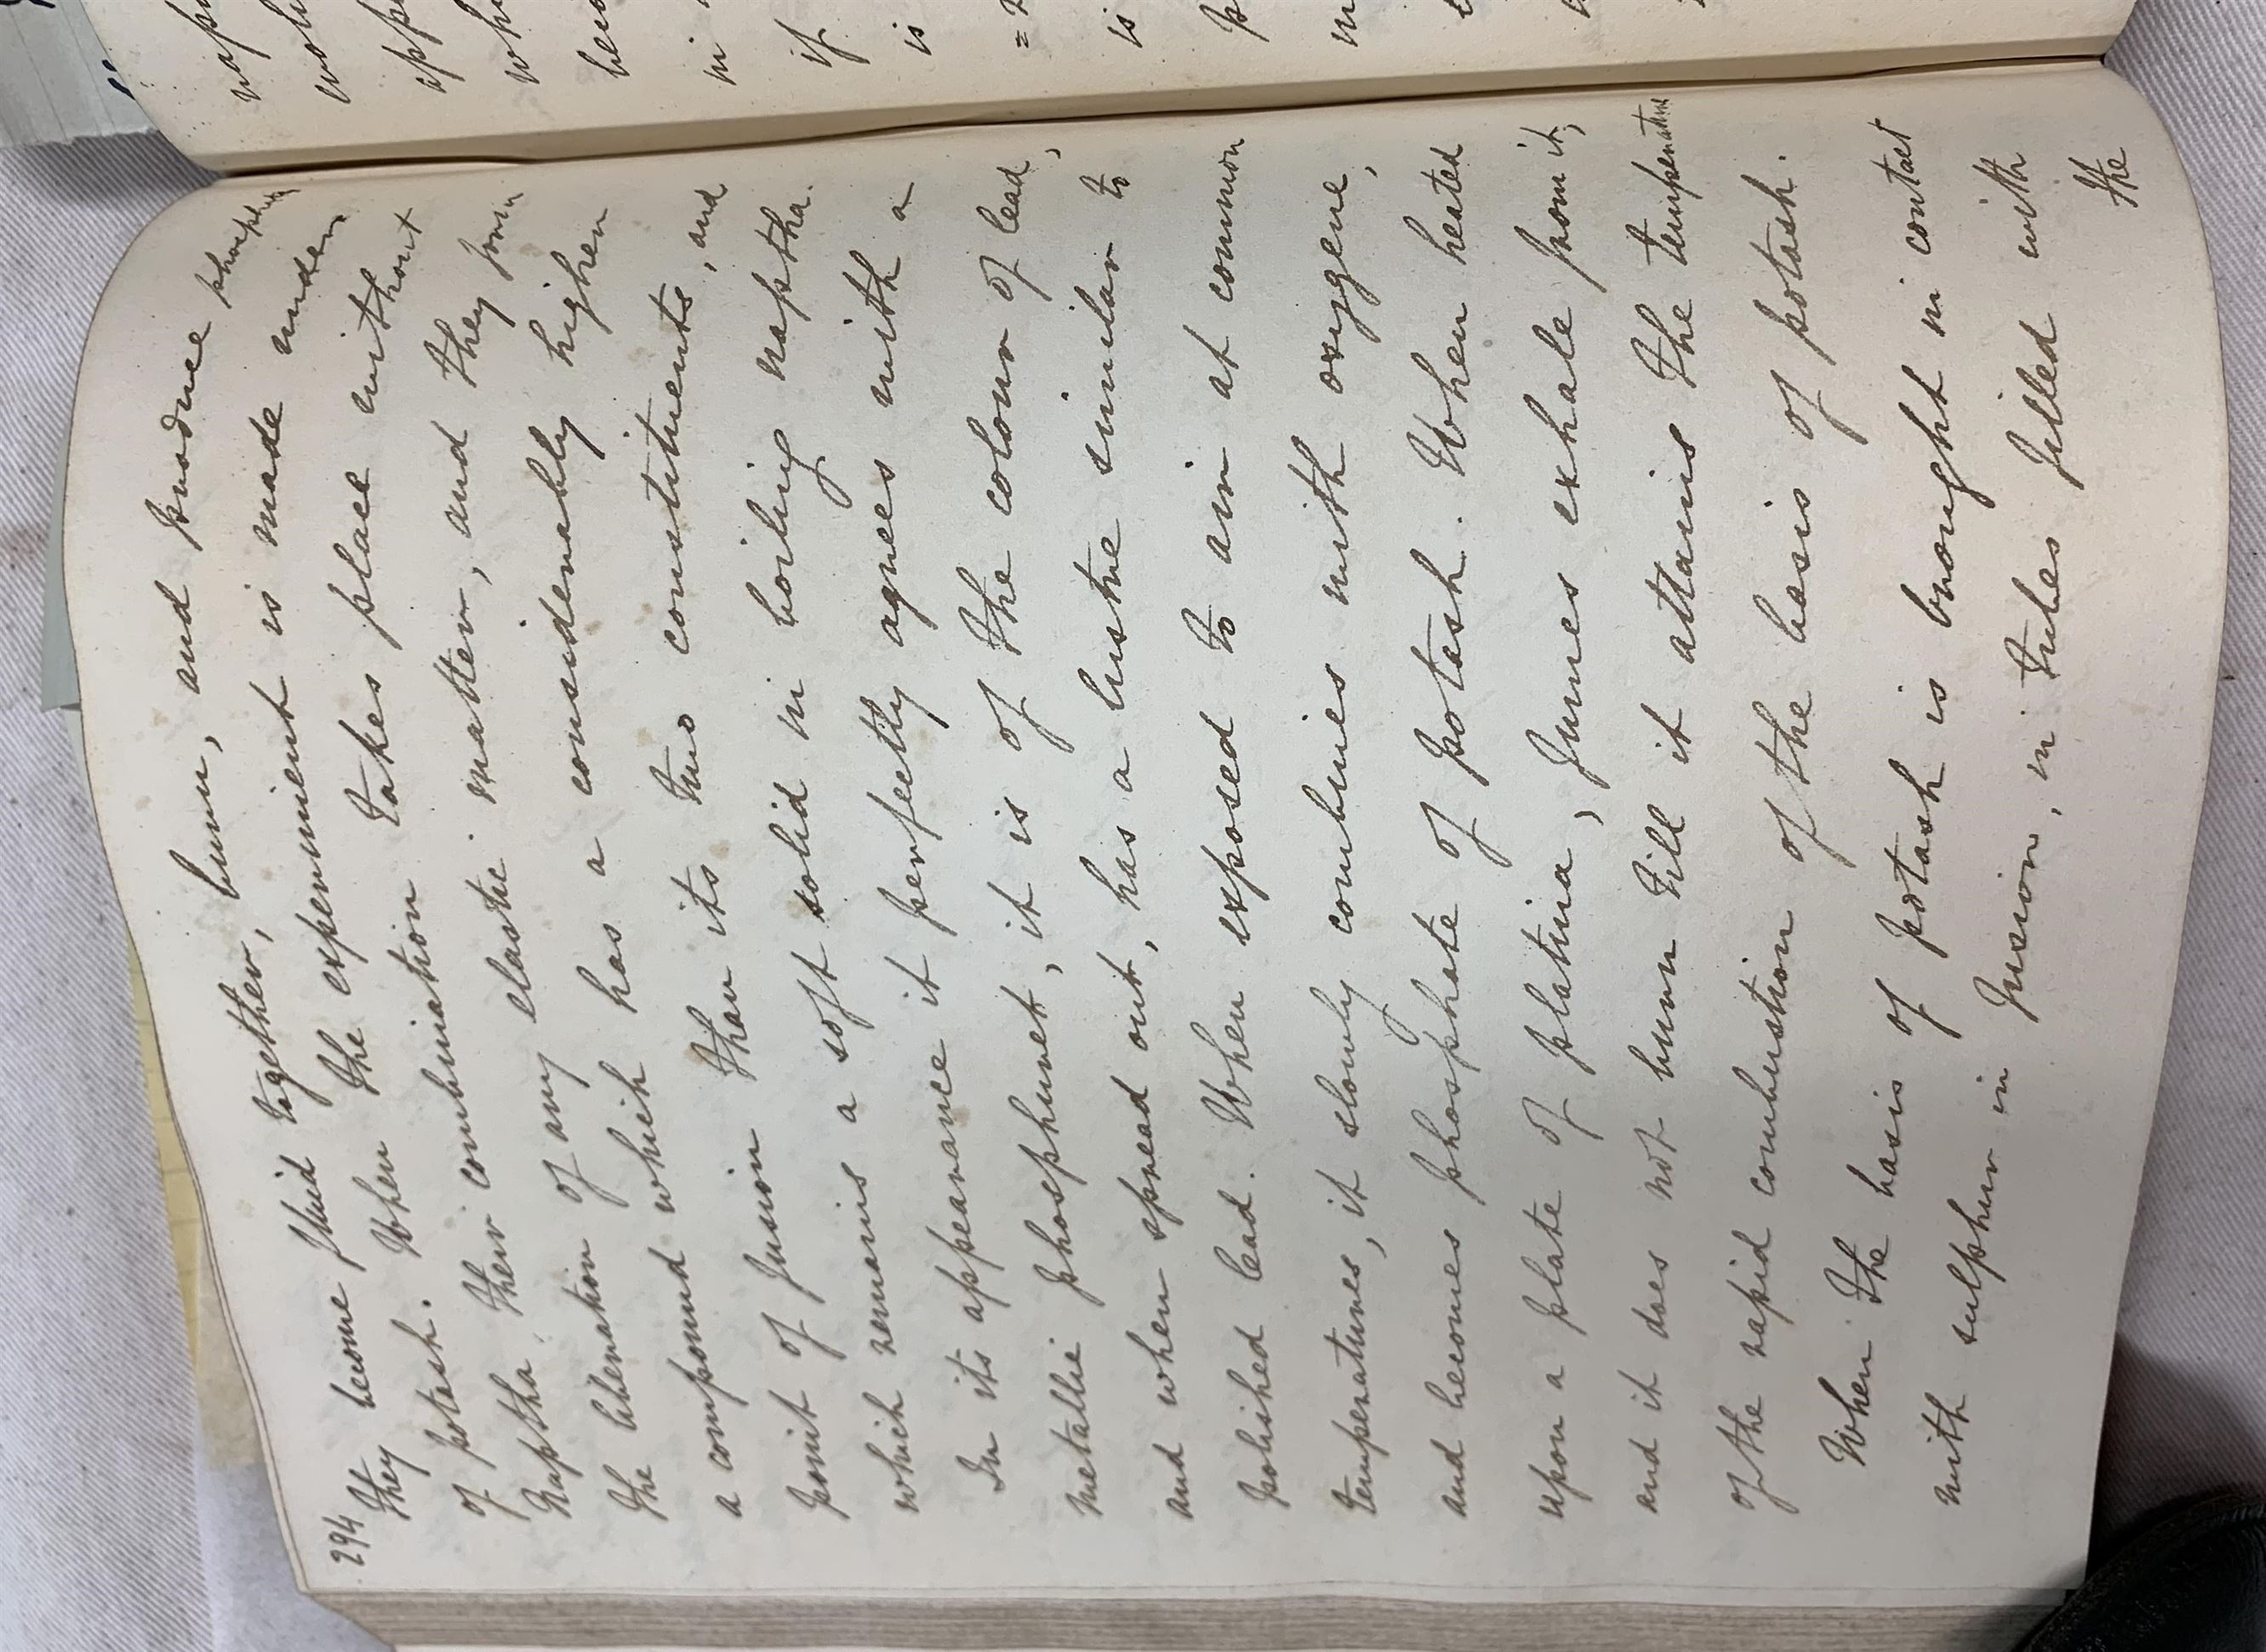 294
They become fluid together, burn, and produce phosphate
of potash. When the experiment is made under
Naptha, their combination takes place without
the liberation of any elastic matter, and they form
a compound which has a considerably higher
point of fusion than its two constituents, and
which remains a soft solid in boiling naptha.
In its appearance it perfectly agrees with a
metallic phosphuret, it is of the colour of lead,
and when spread out, has a lustre similar to
polished lead. When exposed to air at common
temperatures, it slowly combines with oxygene,
and becomes phosphate of potash. When heated
upon a plate of platina, fumes exhale from it,
and it does not burn till it attains the temperature
of the rapid combustion of the basis of potash.
When the basis of potash is brought in contact
with sulphur in fusion, in tubes filled with
the
naph
when
beco
in
if
is
is
p
m